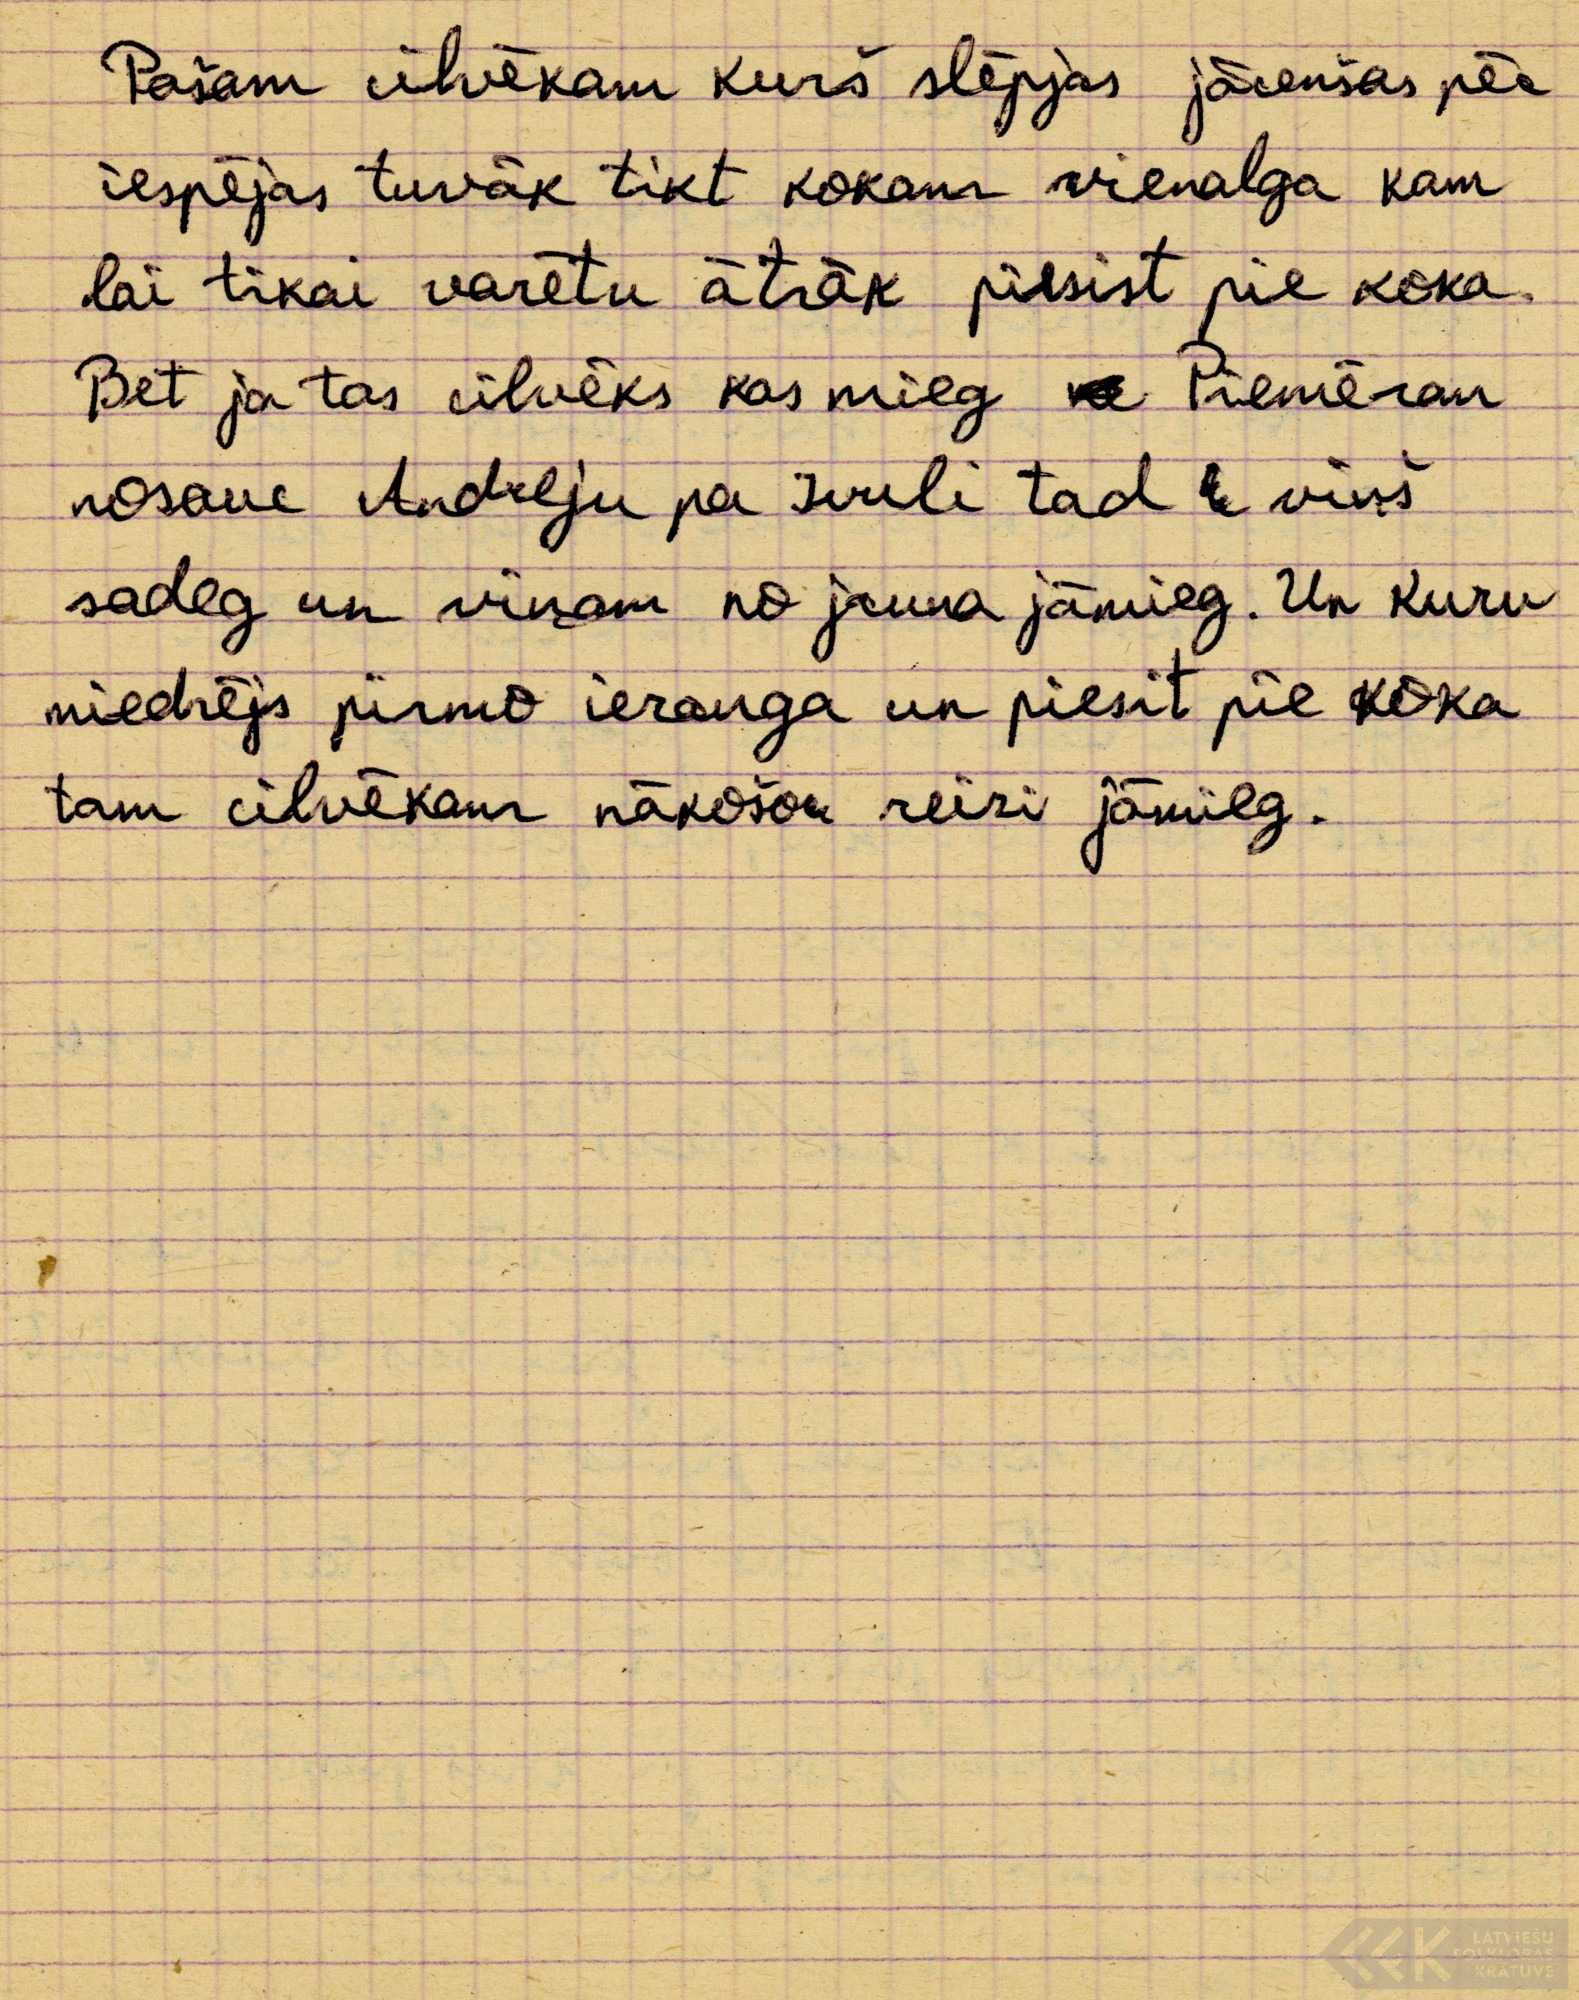 Pašam cilvēkam kurš slēpjas jācenšas pēc
iespējas tuvāk tikt kokam vienalga kam
lai tikai varētu ātrāk piesist pie koka.
Bet ja tas cilvēks kas mieg Piemēram
nosauc Andreju pa Ivuli tad viņš
sadeg un viņam no jauna jāmieg. Un kuru
miedzējs pirmo ierauga un piesit pie koka
tam cilvēkam nākošou reizi jāmieg.
LATVIEŠU
FOLKLORAS
KRĀTUVE